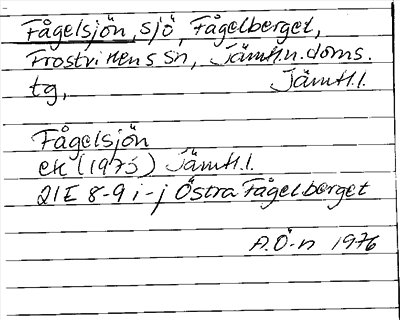 Fågelsjön, sjö, Fågelberget,
Frostvikens sn, Jämtl.n.doms.
tg, Jämtl.l.
Fågelsjön
ek (1975) Jämtl.l.
21E 8-9 i-j Östra Fågelberget
A.Ö-n 1976